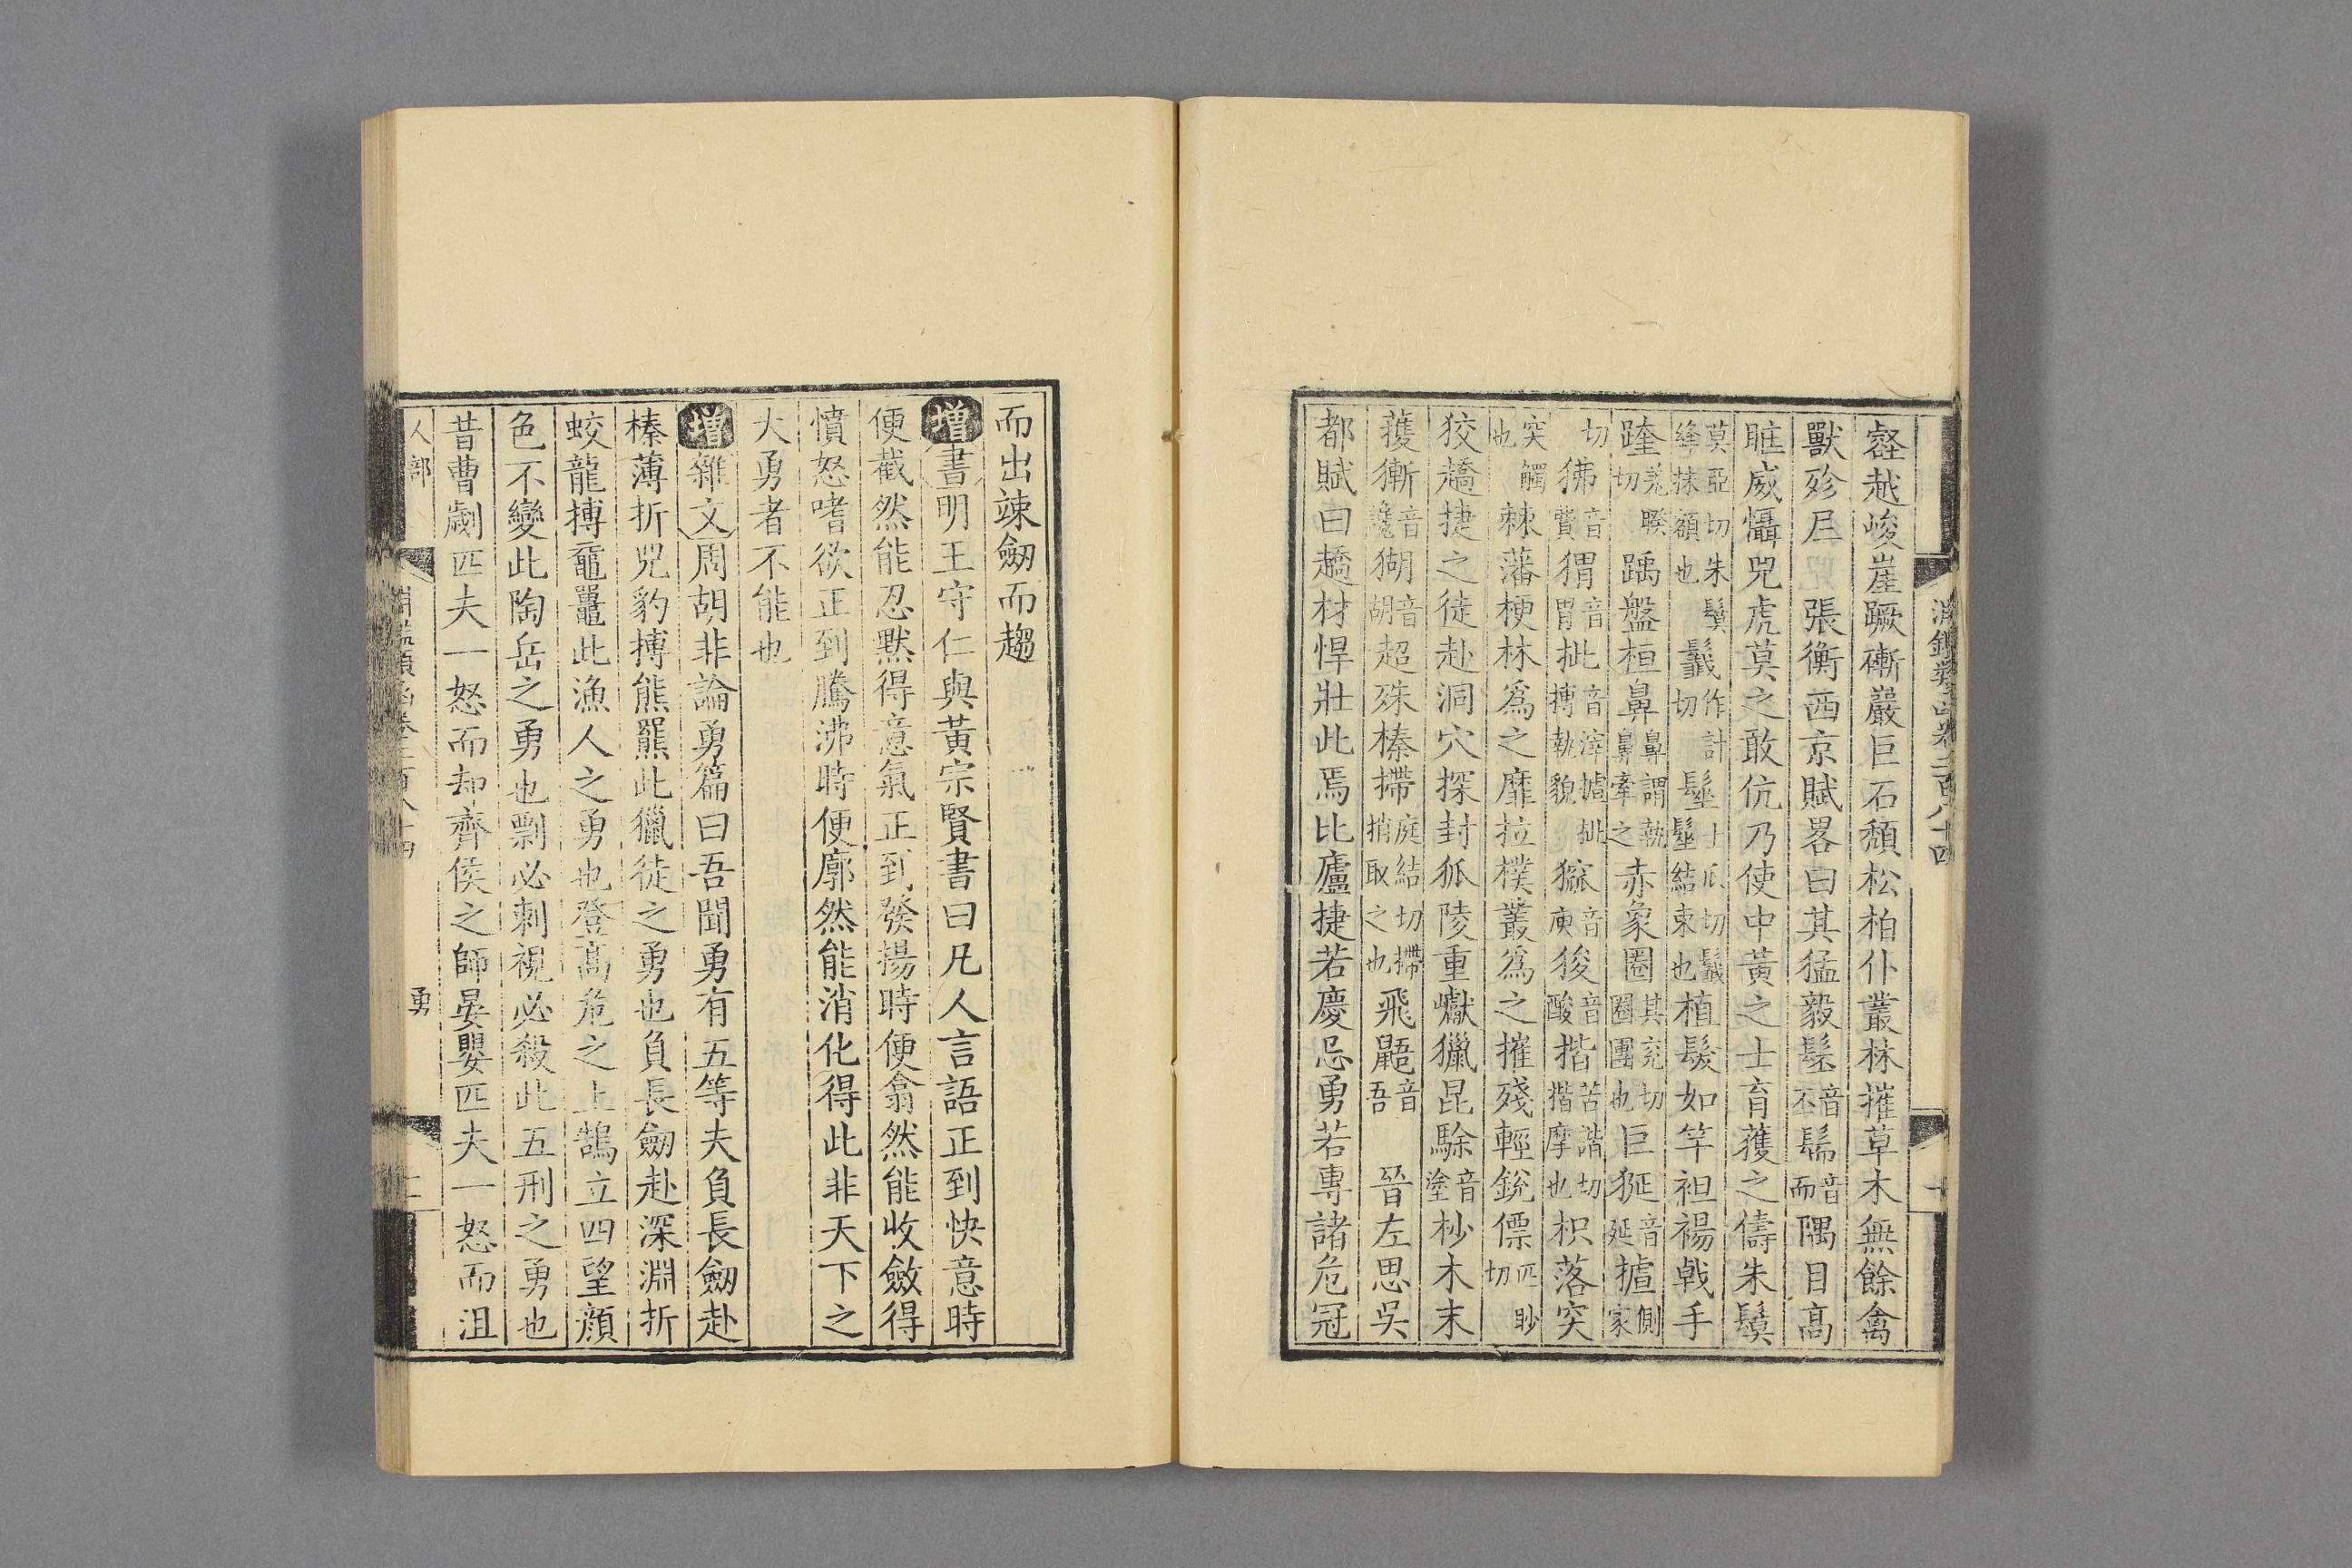 壑越峻崖蹶磭巖巨石頹松柏仆叢林摧草木無餘禽
獸殄𡰥 張衡西京賦畧曰其猛毅髬音不髵音而隅目高
眶威懾兕虎莫之敢伉乃使中黃之士育蒦之儔朱鬕
莫亞切朱鬕絳抹額也䰐作計切髽士瓜切䰐髽結束也植髮如竿袒裼戟手
踛羌睽切踽盤桓鼻鼻謂執鼻牽之赤象圈其兖切圈團也巨狿音延摣側家
切狒音費猬音胃批音滓摣批搏執貌窳音庾狻音酸揩苦諧切揩摩也枳落突
突觸也棘藩梗林為之靡拉樸叢為之摧殘輕銳僄匹眇切
狡趫捷之徒赴洞穴探封狐陵重巘獵昆駼音塗杪木末
擭獑音讒猢音胡超殊榛摕庭結切摕捎取之也飛鼯音吾 晉左思吳
都賦曰趫材悍壯此焉比廬捷若慶忌勇若專諸危冠
而出竦劒而趨
增書明王守仁與黃宗賢書曰凡人言語正到快意時
便截然能忍黙得意氣正到發揚時便翕然能收斂得
憤怒嗜欲正到騰沸時便廓然能消化得此非天下之
大勇者不能也
增雜文周胡非論勇篇曰吾聞勇有五等夫負長劒赴
榛薄折兕豹搏熊羆此獵徒之勇也負長劒赴深淵折
蛟龍搏黿鼉此漁人之勇也登高危之上鵠立四望顔
色不變此陶岳之勇也剽必刺視必殺此五刑之勇也
昔曹劌匹夫一怒而却齊侯之師晏嬰匹夫一怒而沮
人部 勇